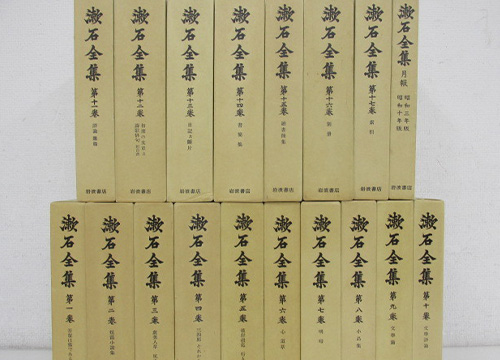 漱石全集 第十一巻 評論 雑篇 岩波書店
漱石全集 第十二巻 岩波書店
漱石全集 第十三巻 日記及断片 岩波書店
漱石全集 第十四巻 書簡集 岩波書店
漱石全集 第十五巻 続書簡集 岩波書店
漱石全集 第十六巻 別冊 岩波書店
漱石全集 第十七巻 索引 岩波書店
漱石全集 月報 昭和三年版 昭和十年版 岩波書店
漱石全集 第一巻
漱石全集 第二巻 短篇小説集
漱石全集 第三巻
漱石全集 第四巻
漱石全集 第五巻
漱石全集 第六巻 心 道草
漱石全集 第七巻 明暗
漱石全集 第八巻 小品集
漱石全集 第九巻 文学論
漱石全集 第十巻 文学評論